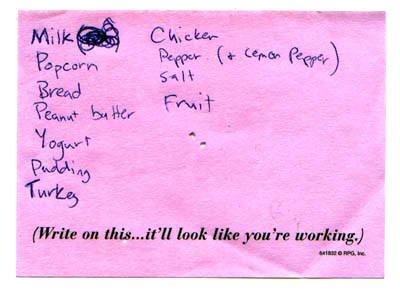 Milk
Popcorn
Bread
Peanut butter
Yogurt
Pudding
Turkey
Chicken
Pepper (& Lemon Pepper)
Salt
Fruit
(Write on this...it'll look like you're working.)
641832 © RPG, Inc.